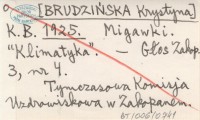 [BRUDZIŃSKA Krystyna]
K.B. 1925. Migawki.
"Klimatyka". — Głos Zakop.
3, nr 4.
Tymczasowa Komisja
Uzdrowiskowa w Zakopanem.